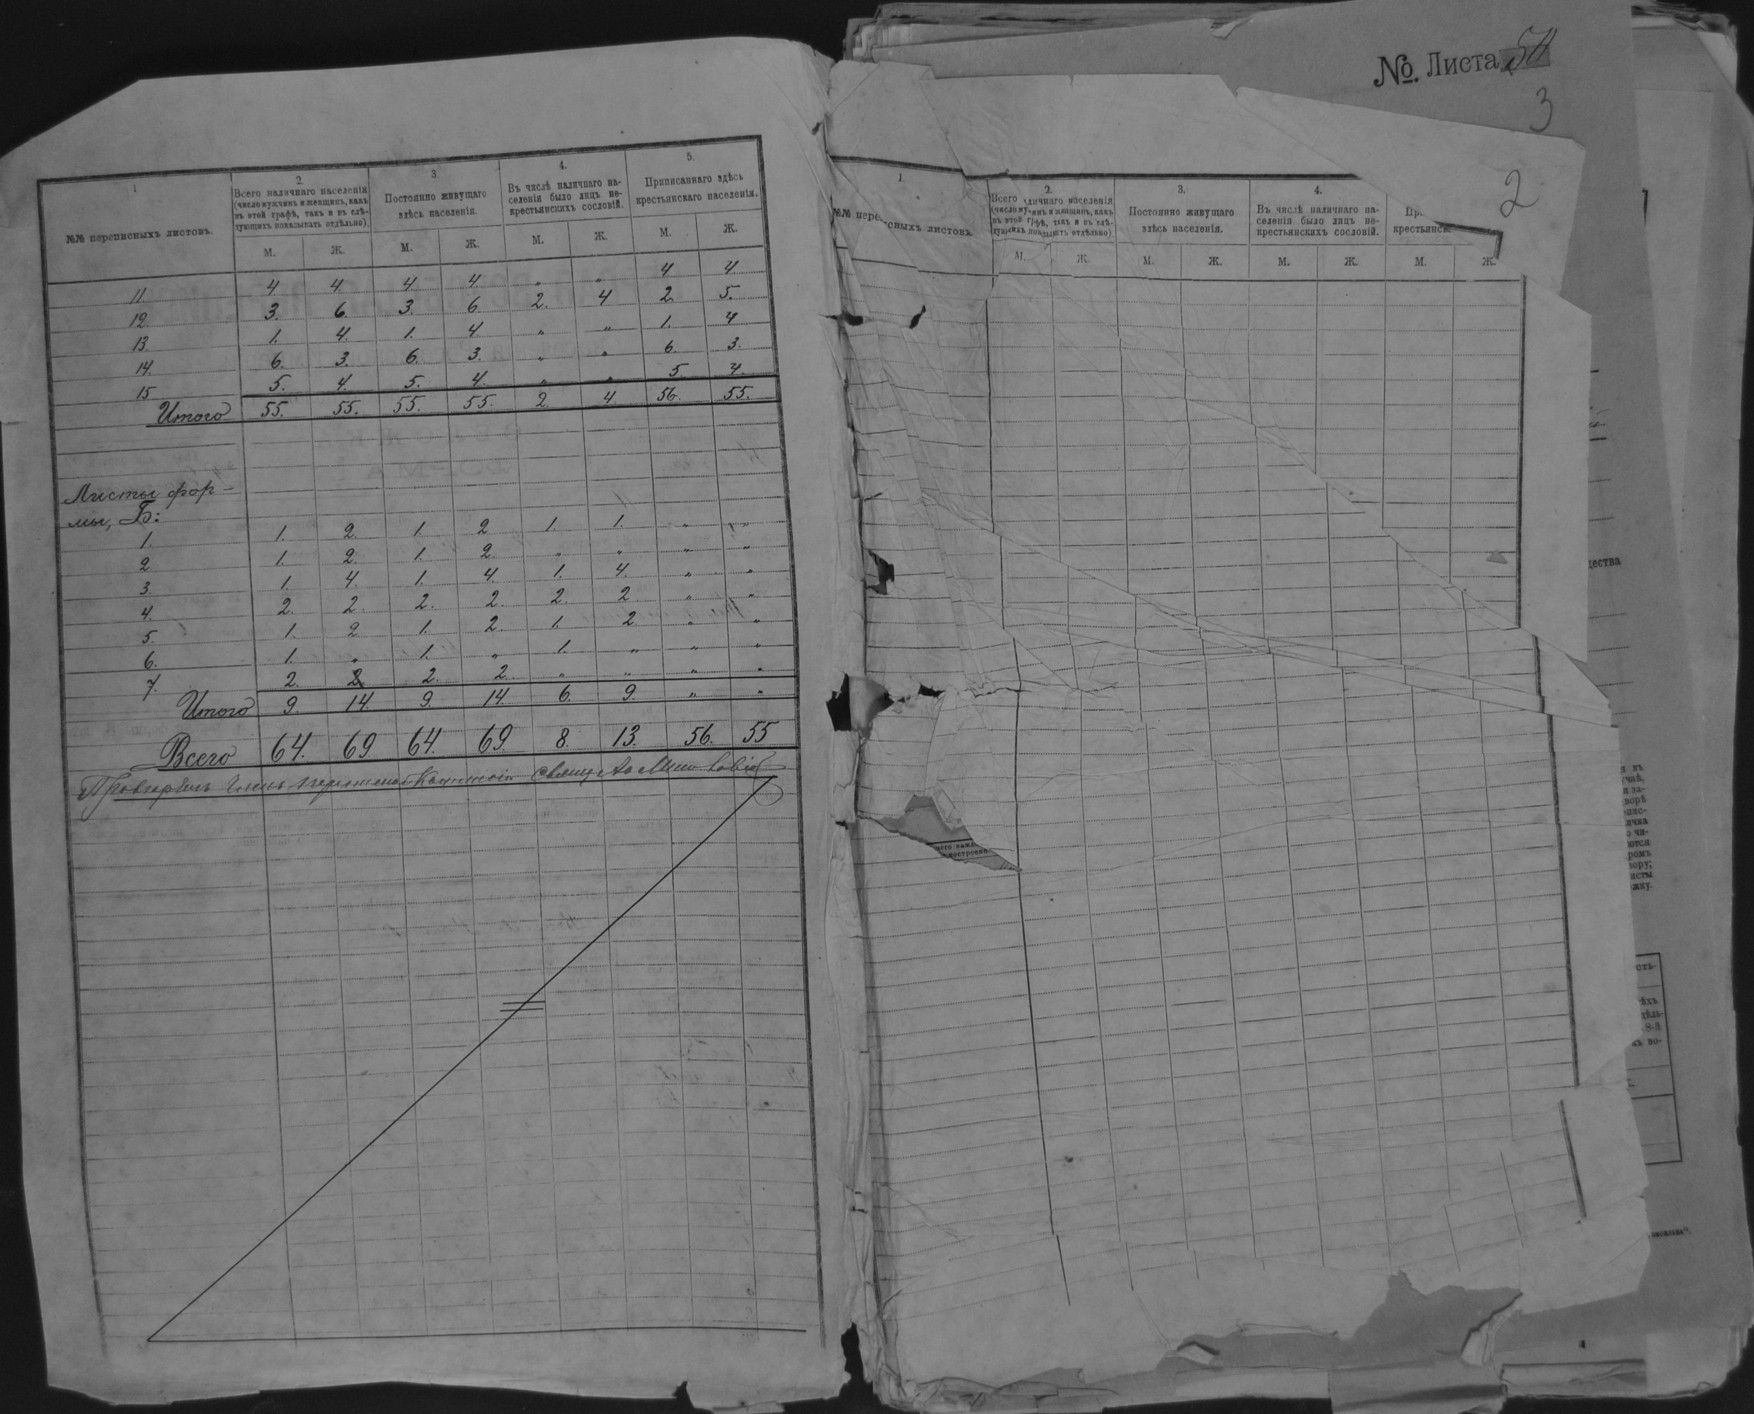 1
№№ переписныхъ листовъ.
2.
Всего наличнаго населенія
(число мужчинъ и женщинъ, какъ
въ этой графѣ, такъ и въ слѣ-
дующихъ показывать отдѣльно).
3.
Постоянно живущаго
здѣсь населенія.
4.
Въ числѣ наличнаго на-
селенія было лицъ не-
крестьянскихъ сословій.
5.
Приписаннаго здѣсь
крестьянскаго населенія.
М. Ж. М. Ж. М. Ж. М. Ж.
11. 4. 4. 4. 4 „ „ 4 4
12 3. 6. 3. 6. 2. 4 2. 5.
13. 1. 4. 1. 4 „ „ 1. 4
14. 6. 3. 6. 3. „ „ 6. 3.
15 5. 4. 5. 4. „ „ 5 4.
Итого 55. 55. 55. 55. 2. 4. 56. 55.
Листы фор-
мы, Б:
1. 1. 2. 1. 2 1. 1. „ „
2 1. 2. 1. 2. „ „ „ „
3. 1. 4. 1. 4. 1. 4. „ „
4. 2. 2. 2. 2. 2. 2 „ „
5. 1. 2 1. 2. 1. 2. „ „
6. 1. „ 1. „ 1. „ „ „
7. 2. 2. 2. 2. „ „ „ „
Итого 9. 14. 9. 14. 6. 9. „ „
Всего 64. 69 64. 69. 8. 13. 56. 55
№. Листа
3
2
1.
№№ пере сныхъ листовъ.
2.
Всего личнаго населенія
3.
Постоянно живущаго
здѣсь населенія.
4.
Въ числѣ наличнаго на-
селенія было лицъ не-
крестьянскихъ сословій.
крестьянск
М. Ж. М. Ж. М. Ж. М. Ж.